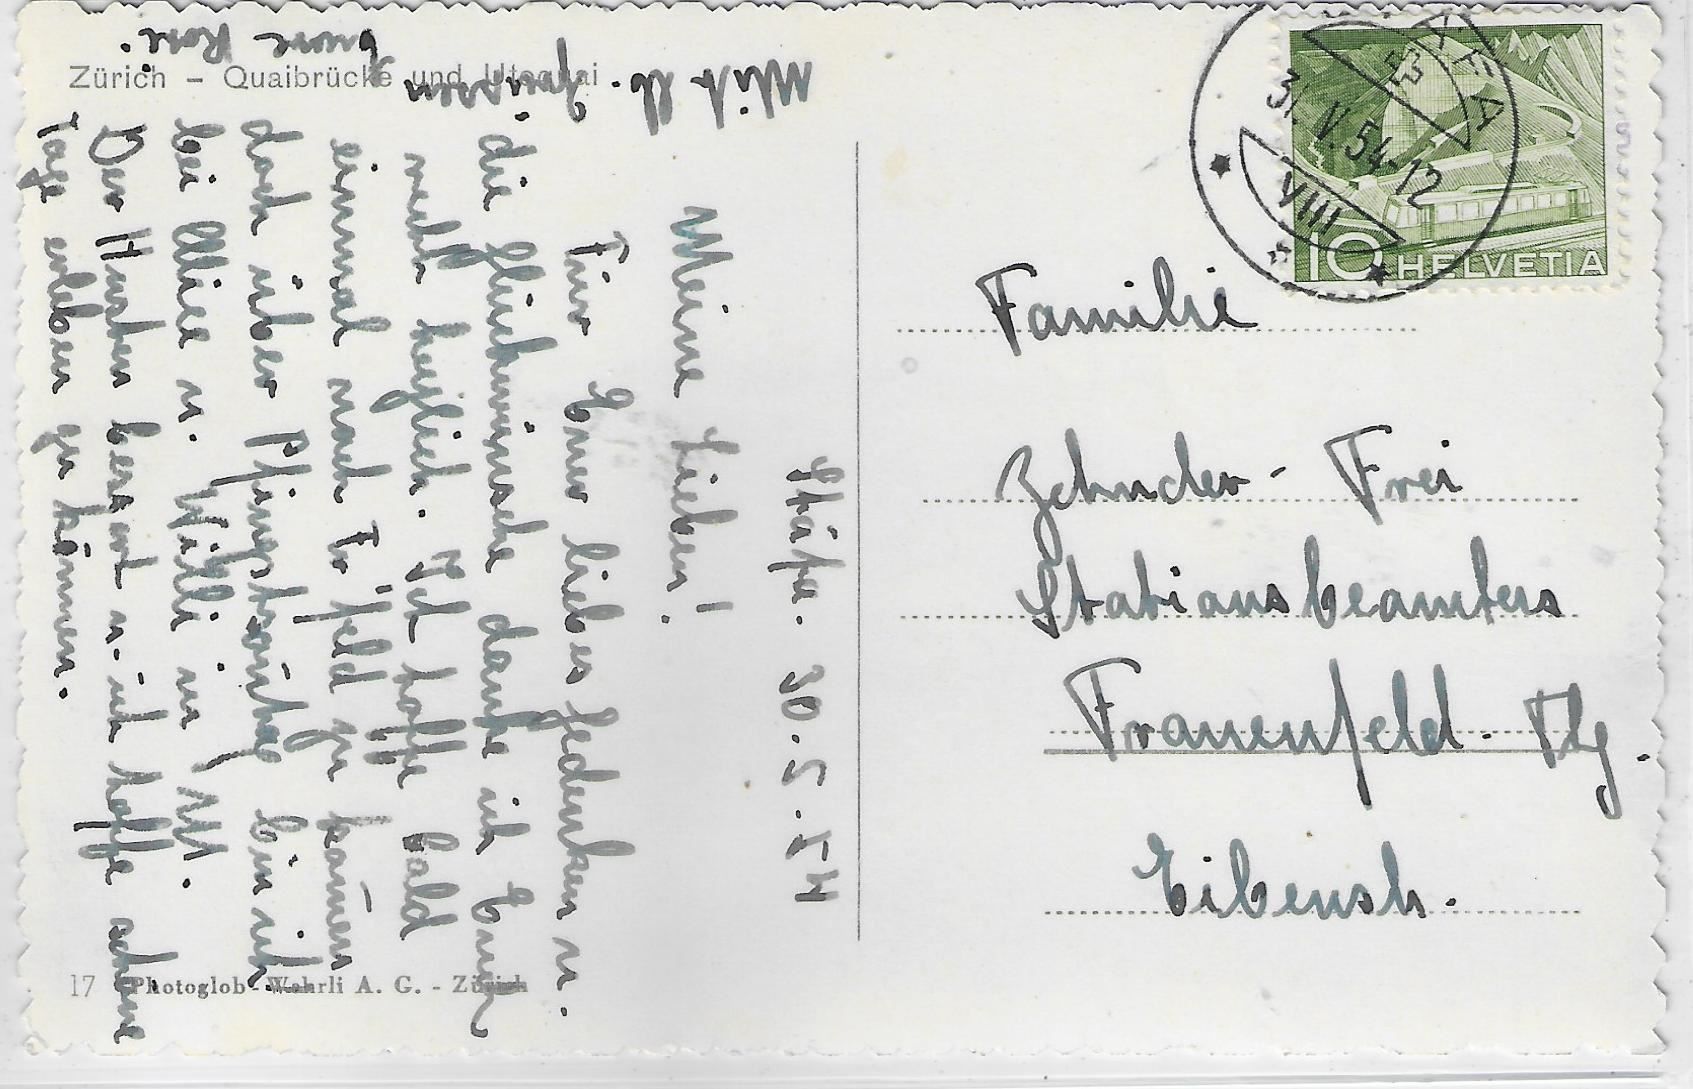 Zürich – Quaibrücke und Utoquai
Stäfa. 30. 5. 54
Meine Lieben!
Für Euer liebes Gedenken u.
die Glückwünsche danke ich Euch
recht herzlich. Ich hoffe bald
einmal nach Fr'feld zu können
doch über Pfingsten bin ich
bei Alice u. Willi in M.
Der Husten bessert u. ich hoffe schöne
Tage erleben zu können.
Mit lb. Grüssen
Eure Rosi.
17 Photoglob-Wehrli A. G. - Zürich
31.V.54-12
VIII
10 HELVETIA
Familie
Zehnder-Frei
Stationsbeamters
Frauenfeld. Thg.
Eibenstr.